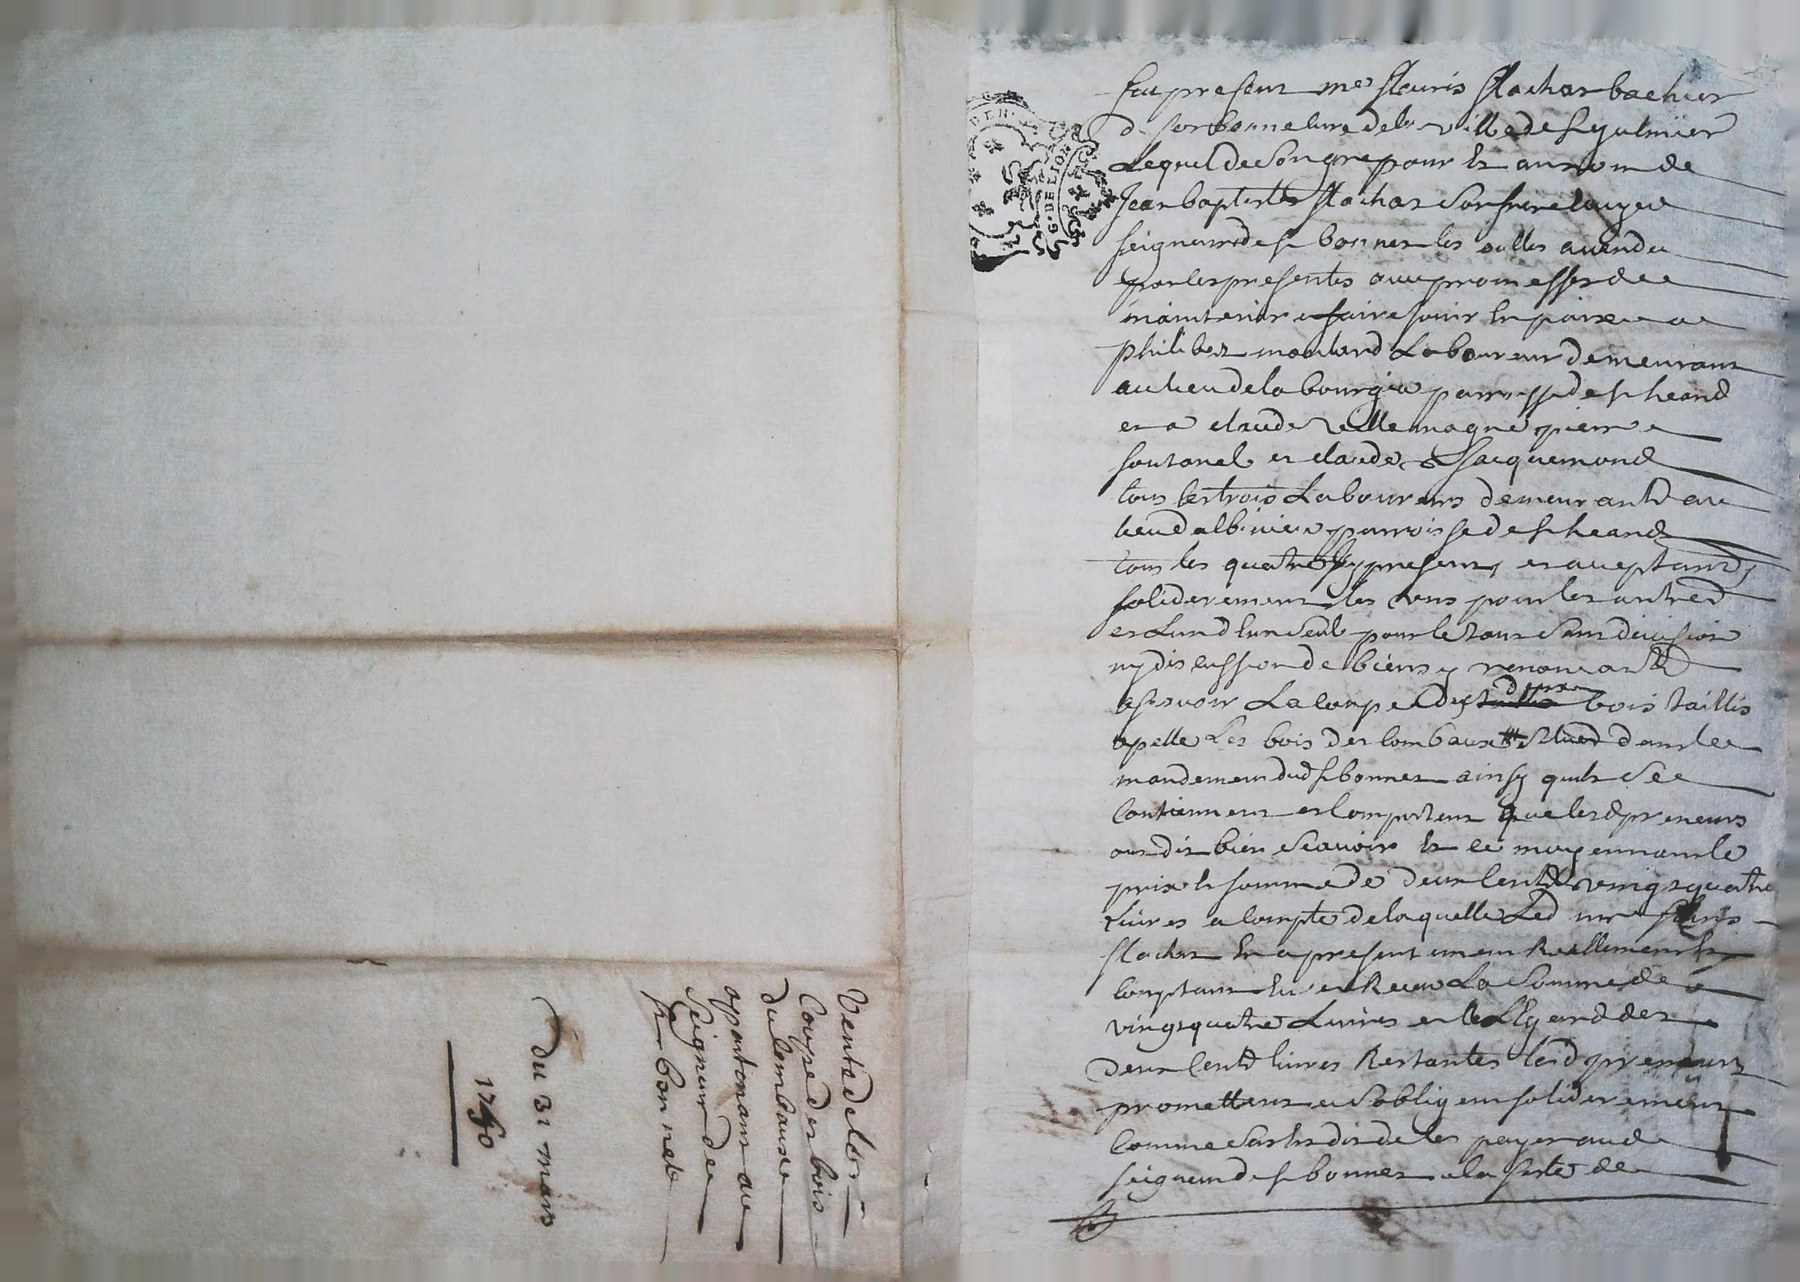 Fut present me fleuris flachat bachier
de sorbonne cure de la ville de st galmier
Lequel de Son gre pour et au nom de
Jean baptiste flachat Son frere
seigneur de st bonnet les oulles a vendu
par les presentes avec promesses de
maintenir et faire jouir en paix a
philibert moulard Laboureur demeurant
au lieu de la bourgia parroisse de st heand
et a claude Vellemagne pierre
fontanel et claude Jacquemond
tous les trois Laboureurs demeurants au
lieu d'albuieu parroisse de st heand
tous les quatre icy presents, et acceptants,
soliderement les uns pour les autres
et Lun d'eux Seul pour le tout Sans division
ny discussion de biens y renoncants
a scavoir La coupe des deux bois taillis
apelle Les bois des lombaux Situes dans le
mandement dud st bonnet ainsy quils Se
Contiennent et Comportent que lesd preneurs
ont dit bien Scavoir et ce moyennant le
prix et somme de deux cents vingt quatre
Livres a compte de laquelle Led mre fleuris
flachat en a presentement Reellement et
comptant eu et Receu La Somme de
vingt quatre Livres et a Legard des
deux cents livres Restantes lesd preneurs
promettent et Sobligent soliderement
Comme Sus est dit de les payer aud
seigneur de st bonnet a la feste de
Vente de la
Coupe des bois
du lombaux
apartenant au
Seigneur de
st bonnet
du 31 mars